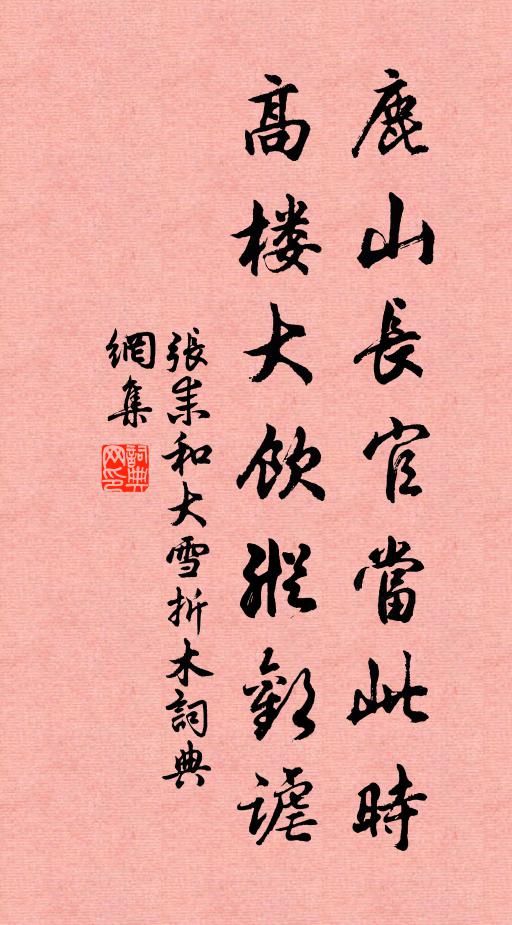 鹿山長官當此時
高楼大飲縱歡謔
張耒和大雪折木詞典
網集
詞典网印